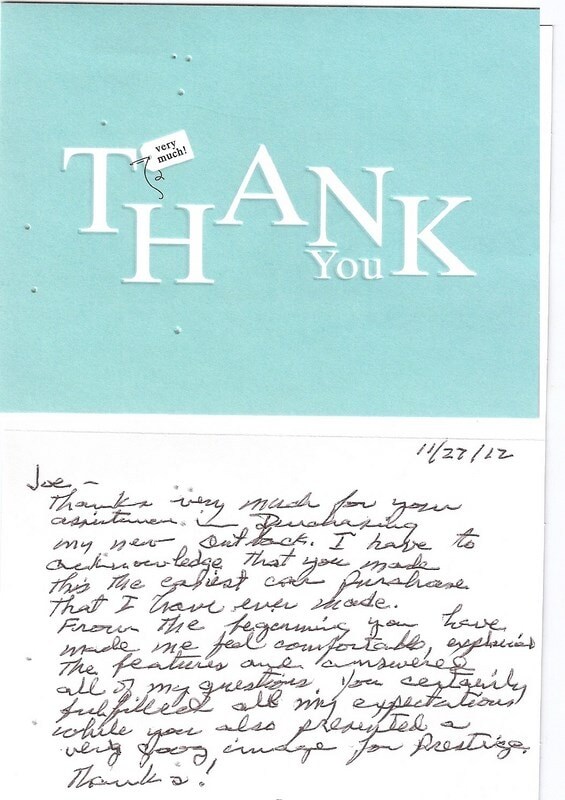 very
much!
THANK
You
11/27/12
Joe -
Thanks very much for your
assistance in Purchasing
my new Outback. I have to
acknowledge that you made
this the easiest car purchase
that I have ever made.
From the beginning you have
made me feel comfortable, explained
the features and answered
all of my questions. You certainly
fulfilled all my expectations
while you also presented a
very good image for Prestige.
Thanks!